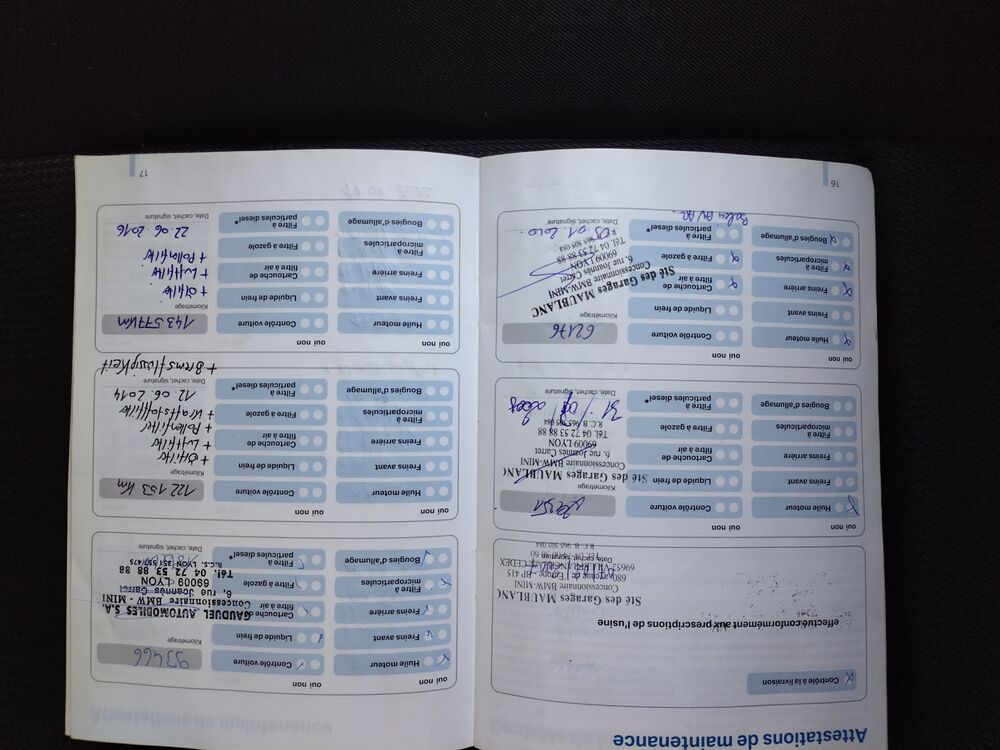 Attestations de maintenance
Contrôle à la livraison
effectué conformément aux prescriptions de l'usine
Sté des Garages MAUBLANC
Concessionnaire BMW-MINI
oui non
oui non
Huile moteur
Contrôle voiture
Freins avant
Liquide de frein
Kilométrage
Freins arrière
Cartouche de
filtre à air
Filtre à
microparticules
Filtre à gazole
Bougies d'allumage
Filtre à
particules diesel*
Date, cachet, signature
Sté des Garages MAUBLANC
Concessionnaire BMW-MINI
6, rue Joannès Carret
69009 LYON
Tél. 04 72 53 88 88
R.C. B 965 505 084
oui non
oui non
Huile moteur
Contrôle voiture
62176
Freins avant
Liquide de frein
Kilométrage
Freins arrière
Cartouche de
filtre à air
Filtre à
microparticules
Filtre à gazole
Bougies d'allumage
Filtre à
particules diesel*
Date, cachet, signature
Sté des Garages MAUBLANC
Concessionnaire BMW-MINI
6, rue Joannès Carret
69009 LYON
Tél. 04 72 53 88 88
16
Attestations de maintenance
oui non
oui non
Huile moteur
Contrôle voiture
93466
Freins avant
Liquide de frein
Kilométrage
Freins arrière
Cartouche de
filtre à air
Filtre à
microparticules
Filtre à gazole
Bougies d'allumage
Filtre à
particules diesel*
Date, cachet, signature
GAUDUEL AUTOMOBILES S.A.
Concessionnaire BMW - MINI
6, rue Joannès Carret
69009 LYON
Tél. 04 72 53 88 88
oui non
oui non
Huile moteur
Contrôle voiture
122 153 km
Freins avant
Liquide de frein
Kilométrage
Freins arrière
Cartouche de
filtre à air
Filtre à
microparticules
Filtre à gazole
Bougies d'allumage
Filtre à
particules diesel*
Date, cachet, signature
+ Ölfilter
+ Luftfilter
+ Pollenfilter
+ Kraftstofffilter
12. 06. 2014
+ Bremsflüssigkeit
oui non
oui non
Huile moteur
Contrôle voiture
143.577 km
Freins avant
Liquide de frein
Kilométrage
Freins arrière
Cartouche de
filtre à air
Filtre à
microparticules
Filtre à gazole
Bougies d'allumage
Filtre à
particules diesel*
Date, cachet, signature
+ Ölfilter
+ Luftfilter
+ Pollenfilter
22 06 2016
17